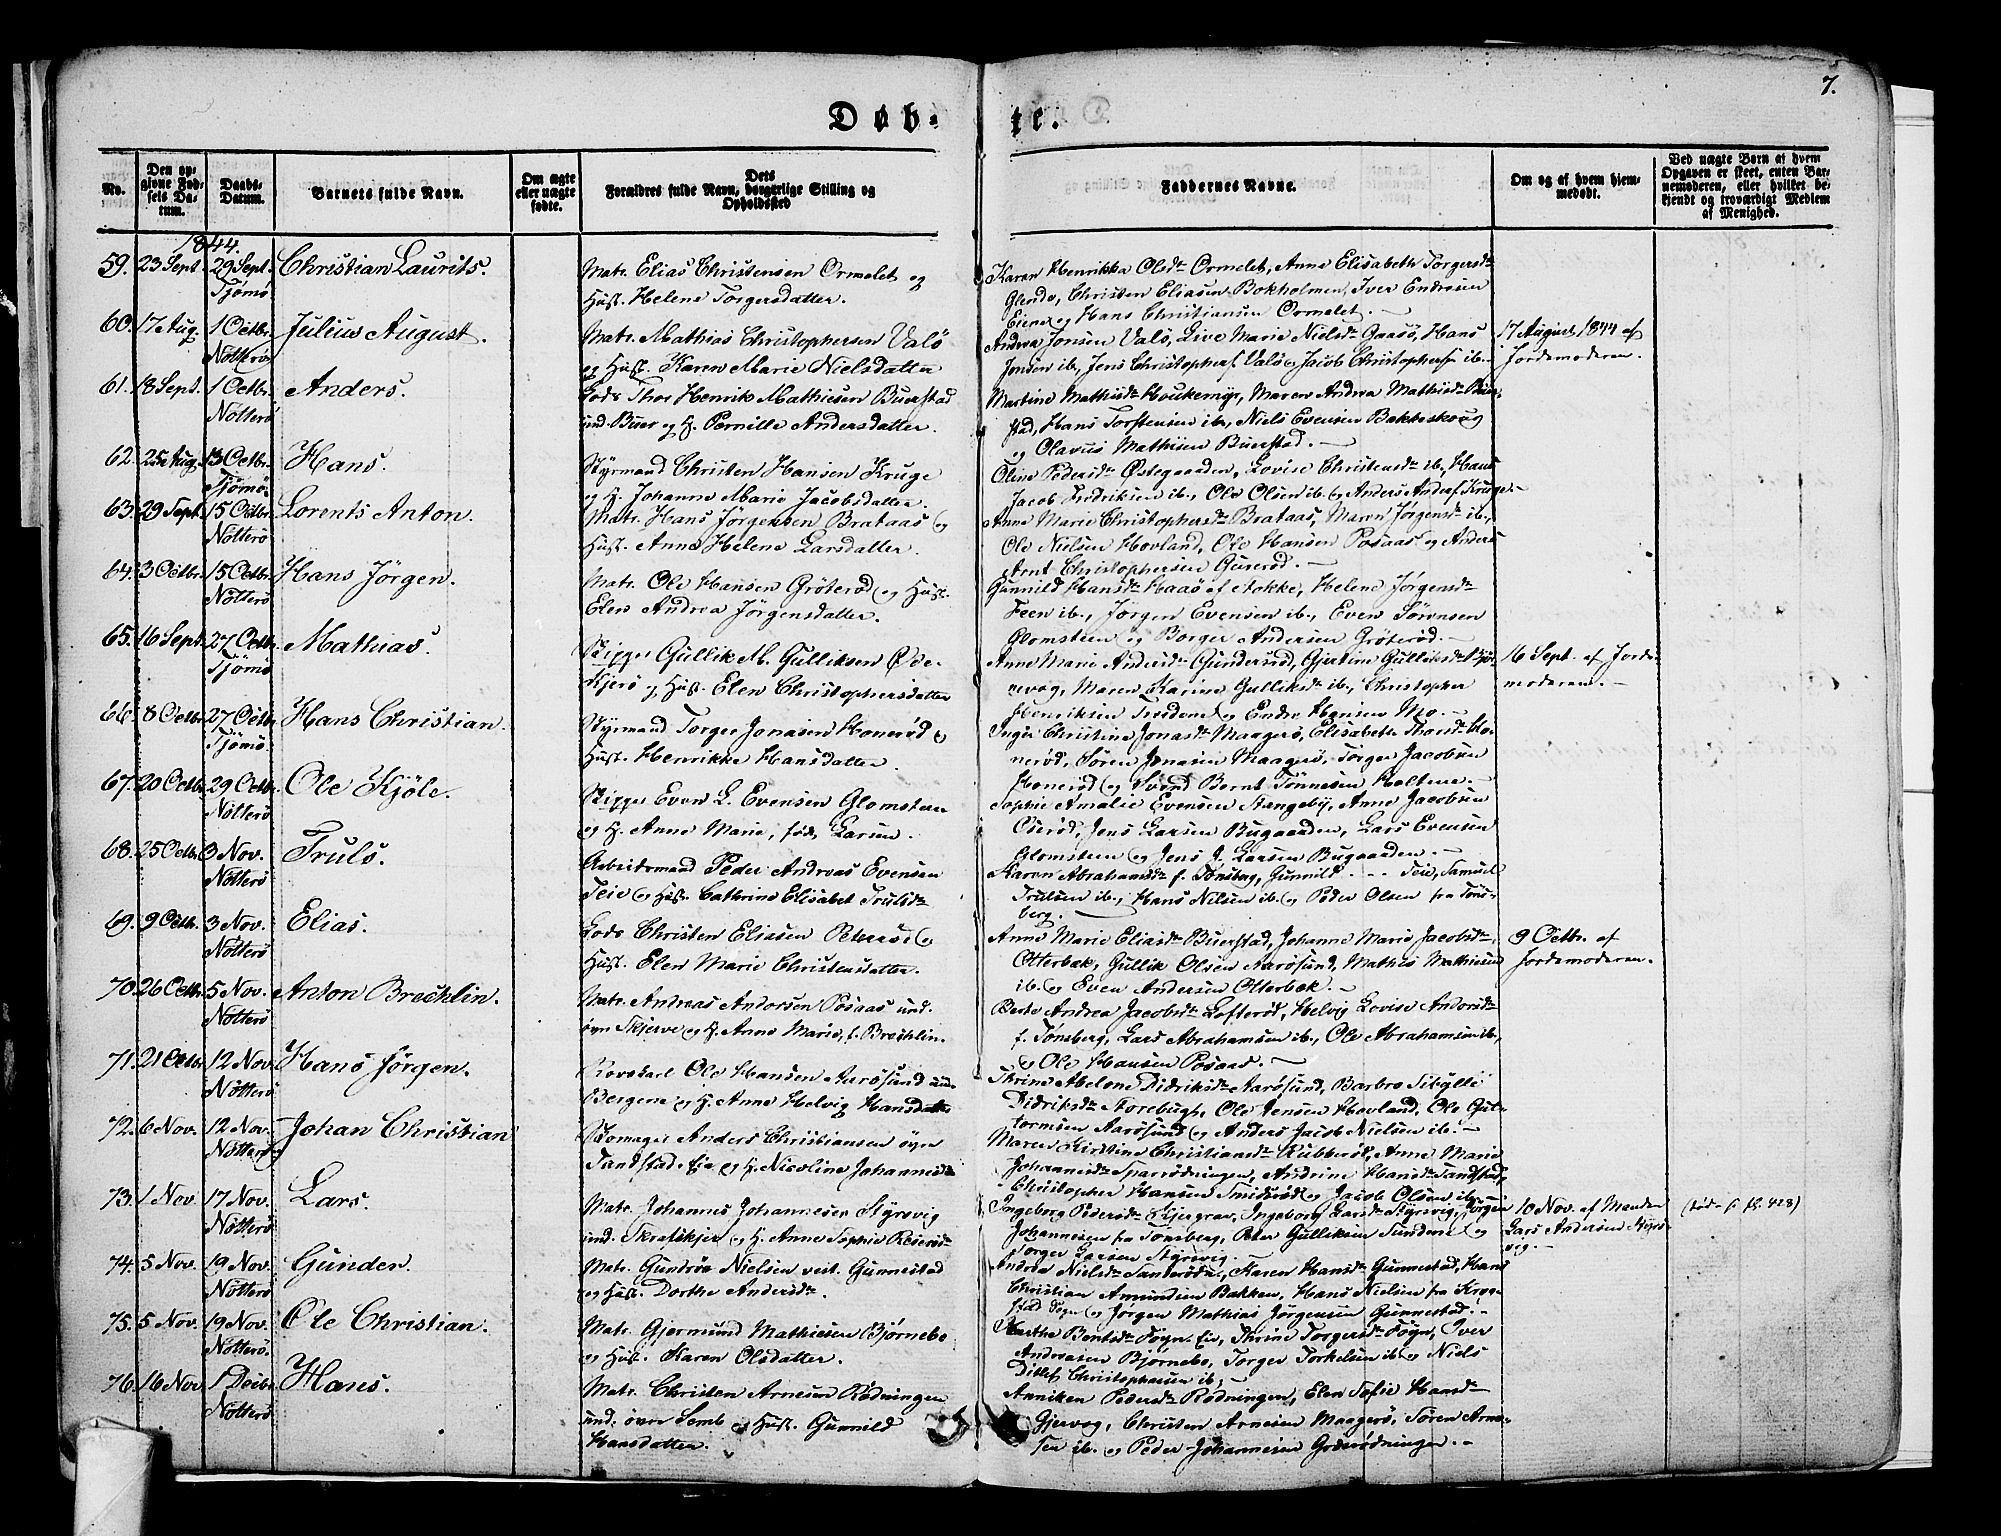 7.
Døb- te.
No.
Den opgivne Fødsels Datum.
Daabs-Datum.
Barnets fulde Navn.
Om ægte eller uægte fødte.
Dets Forældres fulde Navn, borgerlige Stilling og Opholdssted
Faddernes Navne.
Om og af hvem hjemmedøbt.
Ved uægte Børn af hvem Opgaven er skeet, enten Barnemoderen, eller hvilket bekjendt og troværdigt Medlem af Menighed.
1844.
59. 23 Sept. 29 Sept. Tjömö Christian Laurits.
Matr. Elias Christensen Ormelet og
Hust. Helene Torgersdatter.
Karen Henrikka Olsdr Ormelet, Anne Elisabeth Torgersdr
Glende, Christen Eliasen Bokholmen, Iver Endresen
Eiene og Hans Christiansen Ormelet.
60. 17 Aug. 1 Octbr. Nötterö Julius August.
Matr. Mathias Christophersen Valö
og Hust. Karen Marie Nielsdatter
Andrea Jonsen Valö, Live Marie Nielsdr Gaasö, Hans
Jonsen ib., Jens Christophers. Valö og Jacob Christophers. ib.
17 August 1844 af
Jordemoderen.
61. 18 Sept. 1 Octbr. Nötterö Anders.
Gods Thor Henrik Mathiesen Buerstad
und. Buer og H. Pernille Andersdatter.
Martine Mathisdr Houkemyr, Maren Andrea Mathisdr Buer-
stad, Hans Torstensen ib., Niels Evensen Bakkeskoug
og Olavus Mathisen Buerstad.
62. 25 Aug. 13 Octbr. Tjömö Hans.
Styrmand Christen Hansen Kruge
og H. Johanne Marie Jacobsdatter.
Oline Pedersdr Østegaarden, Lovise Christensdr ib., Hans
Jacob Fredriksen ib., Ole Olsen ib. og Anders Anders. Kruge.
63. 29 Sept. 15 Octbr. Nötterö Lorents Anton.
Matr. Hans Jörgensen Brataas og
Hust. Anne Helene Larsdatter.
Anne Marie Christophersdr Brataas, Maren Jörgensdr ib.,
Ole Nielsen Hovland, Ole Hansen Posaas og Anders
Arnt Christophersen Gunerød.
64. 3 Octbr. 15 Octbr. Nötterö Hans Jörgen.
Matr. Ole Hansen Gröterød og Hust.
Elen Andrea Jörgensdatter.
Gunnild Hansdr Haaö af Stokke, Helene Jörgensdr
Feen ib., Jörgen Evensen ib., Even Sörensen
Glomsteen og Borger Andersen Gröterød.
65. 16 Sept. 27 Octbr. Tjömö Mathias.
Skipper Gullik M. Gulliksen Øde-
Kjerö og Hust. Elen Christophersdatter
Anne Marie Andersdr Gundersrød, Gjertine Gulliksdr Bjør-
nevog, Maren Karine Gulliksdr ib., Christopher
Henriksen Tredene og Endre Hansen Mo.
16 Sept. af Jorde-
moderen.
66. 8 Octbr. 27 Octbr. Tjömö Hans Christian.
Styrmand Torger Jonasen Honerød og
Hust. Henrikke Hansdatter.
Inger Christine Jonasdr Maagerö, Elisabeth Thorsdr Ho-
nerød, Sören Jonasen Maagerö, Torger Jacobsen
Honerød og Svend Bernt Tönnesen Holtene.
67. 20 Octbr. 29 Octbr. Nötterö Ole Kjöle.
Skipper Even L. Evensen Glomsteen
og H. Anne Marie, föd Larsen.
Sophie Amalie Evensen Stangeby, Anne Jacobsen
Oserød, Jens Larsen Bugaarden, Lars Evensen
Glomsteen og Jens J. Larsen Bugaarden.
68. 25 Octbr. 3 Nov. Nötterö Truls.
Arbeidsmand Peder Andreas Evensen
Teie og Hust. Cathrine Elisabet Trulsdr
Karen Abrahamsdr f. Tönsberg, Gunnild - - - Teie, Samuel
Trulsen ib., Hans Nilsen ib. og Peder Olsen fra Töns-
berg.
69. 9 Octbr. 3 Nov. Nötterö Elias.
Gods Christen Eliasen Petersrød og
Hust. Elen Marie Christensdatter.
Anne Marie Eliasdr Buerstad, Johanne Marie Jacobsdr
Otterbæk, Gullik Olsen Aarösund, Mathis Mathisen
ib. og Even Andersen Otterbæk.
9 Octbr. af
Jordemoderen.
70. 26 Octbr. 5 Nov. Nötterö Anton Brechlin.
Matr. Andreas Andersen Posaas und.
övn. Skjerve og H. Anne Marie, f. Brechlin.
Berte Andrea Jacobsdr Lofterød, Helvig Lovise Andersdr
f. Tønsberg, Lars Abrahamsen ib., Ole Abrahamsen ib.,
og Ole Hansen Posaas.
71. 21 Octbr. 12 Nov. Nötterö Hans Jörgen.
Rorskarl Ole Hansen Aarösund und.
Bergene og H. Anne Helvig Hansdatter
Thrine Abelone Didriksdr Aarösund, Barbro Sibylle
Didriksdr Storebugh, Ole Jensen Hovland, Ole Gut-
tormsen Aarösund og Anders Jacob Nielsen ib.
72. 6 Nov. 12 Nov. Nötterö Johan Christian
Skomager Anders Christiansen övn
Sandstad Eie og H. Nicoline Johannesdr
Maren Kirstine Christiansdr Kubberöl, Anne Marie
Johannesdr Sparrödningen, Andrine Hansdr Sandstad,
Christopher Hansen Smidsrød og Jacob Olsen ib.
73. 1 Nov. 17 Nov. Nötterö Lars.
Matr. Johannes Johannesen Styrsvig
und. Skrafskjer og H. Anne Sophie Reierdr
Ingeborg Pedersdr Kjergrav, Ingeborg Larsdr Styrsvig, Jörgen
Johannesen fra Tönsberg, Peter Gulliksen Sundene og
Torger Larsen Styrsvig.
10 Nov. af Manden
Lars Andersen Styrs-
vig.
(död f. f. 428)
74. 5 Nov. 19 Nov. Nötterö Gunden.
Matr. Gundröe Nielsen vest. Gunnestad
og Hust. Dorthe Andersdr.
Andrea Nielsdr Sanderöd, Karen Hansdr Gunnestad, Hans
Christian Amundsen Bakken, Hans Nielsen fra Krog-
stad Sogn og Jörgen Mathias Jörgensen Gunnestad.
75. 5 Nov. 19 Nov. Nötterö Ole Christian.
Matr. Gjermund Mathiesen Bjørnebo
og Hust. Karen Olsdatter.
Marthe Berntsdr Föyn. Eie, Thrine Torgersdr Föyn, Iver
Andreasen Bjørnebo, Torger Torkelsen ib. og Niels
Ditlef Christophersen ib.
76. 16 Nov. 1 Decbr Nötterö Hans.
Matr. Christen Arnesen Rødningen
und. övre Semb og Hust. Gunnild
Hansdatter.
Anniken Pedersdr Rødningen, Elen Sofie Hansdr
Gjervog, Christen Arnesen Maagerö, Sören Arne-
sen ib. og Peder Johannesen Grderødningen.